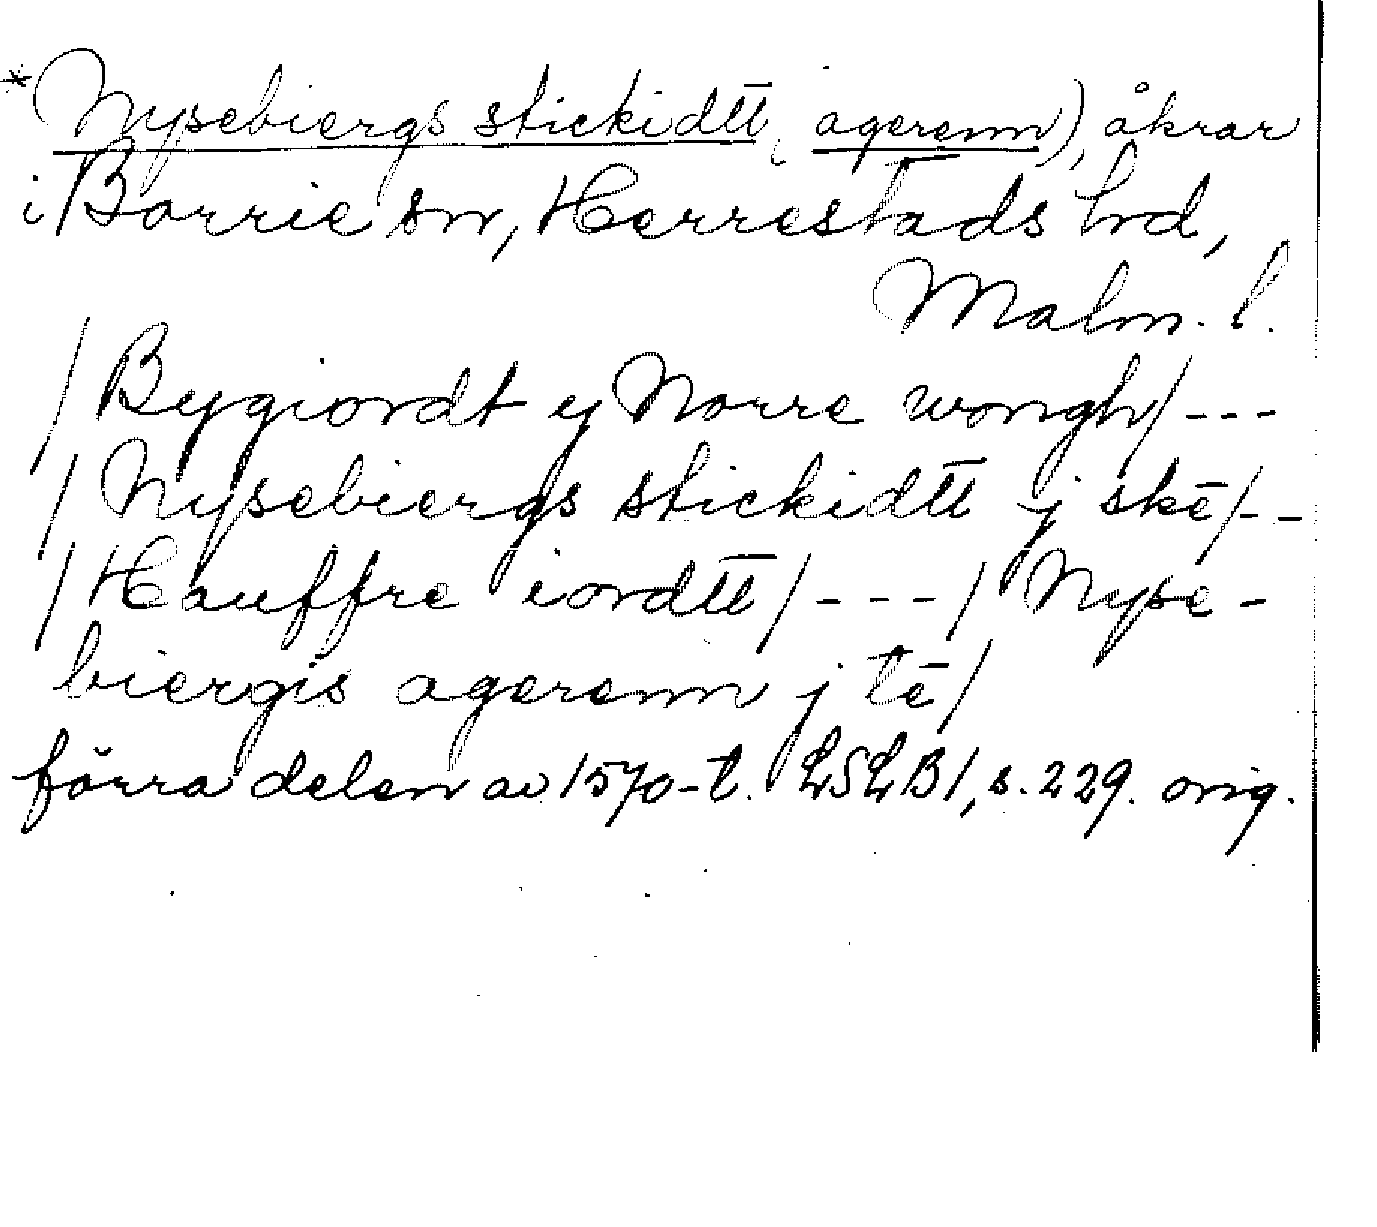 *Nysebiergs stickidtt (agerenn), åkrar
i Borrie sn, Herrestads hd,
Malm. l.
/Bygiordt y Norre wongh/---
/Nysebiergs stickidtt j skē/--
/Hauffre iordtt/---/Nyse-
biergis agerenn j tē/
förra delen av 1570-t. LSLB1, s. 229. orig.